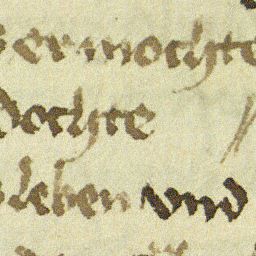 er mochte
dochte
leben vnd